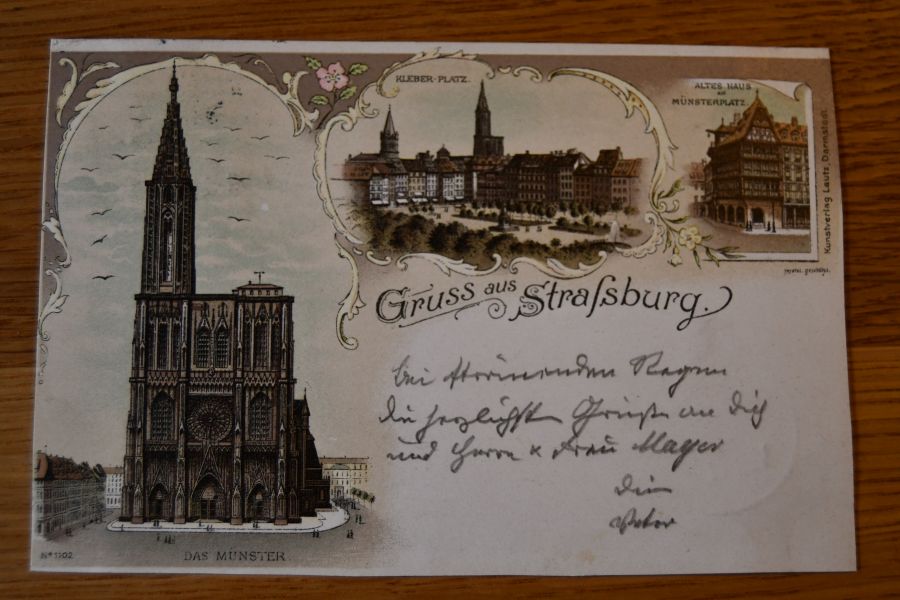 KLEBER-PLATZ.
ALTES HAUS
am
MÜNSTERPLATZ.
Kunstverlag Lautz, Darmstadt.
Gruss aus Straſsburg.
bei strömenden Regen
die herzlichsten Grüße an Dich
und Herrn & Frau Mayer
Dein
Peter
DAS MÜNSTER.
No 1102